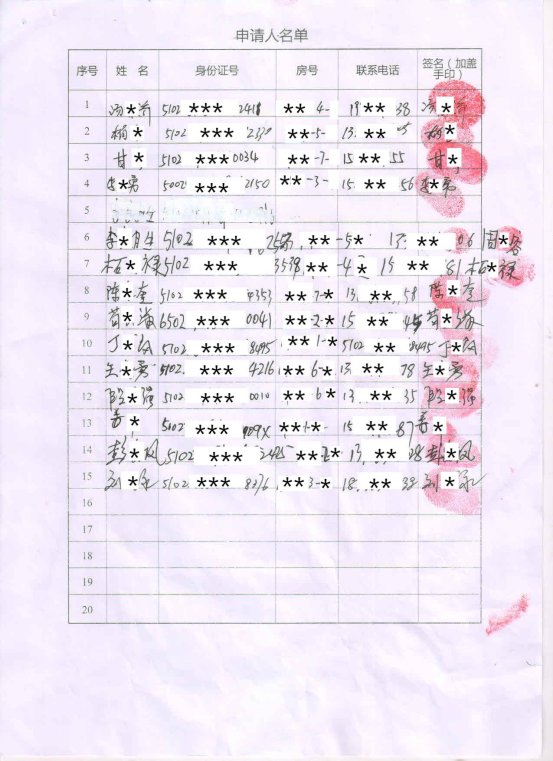 申请人名单
序号 姓 名 身份证号 房号 联系电话 签名（加盖手印）
1 汤*齐 5102 *** 2418 ** 4- 19 ** 38 汤*
2 杨* 5102 *** 2330 **-5- 13 ** 杨*
3 甘* 5102 ***0034 **-7- 15 ** 55 甘*
4 李*勇 5002 *** 2150 **-3- 15 ** 56 李*勇
5
6 李* 生 5102 *** ** -5* 13 ** 06 周*容
7 柏*禄 5102 *** 3538 ** -4 * 15 ** 81 柏*禄
8 陈*奎 5102 *** 0353 ** 7-* 13 ** 58 陈*奎
9 苟*海 6502 *** 0041 **-2-* 15 ** 45 苟*海
10 丁* 5102 *** 8495 ** 1-* 5102 ** 8495 丁*
11 *勇 5102 *** 4216 ** 6-* 13 ** 78 *勇
12 *强 5102 *** 0010 ** 6* 13 ** 35 *强
13 * 5002 *** 009X **1-* 15 ** 87 *
14 彭*凤 5102 *** 2425 ** * 13 ** 28 彭*凤
15 刘*永 5102 *** 8276 **3-* 18 ** 39 刘*永
16
17
18
19
20